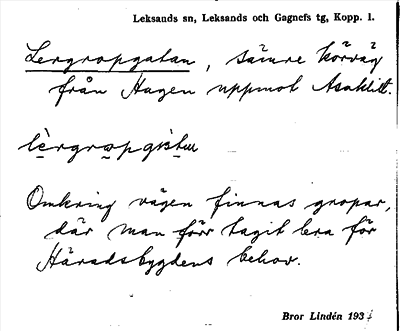 Leksands sn, Leksands och Gagnefs tg, Kopp. l.
Lergropgatan, sämre körväg
från Hagen uppmot Åsaklitt.
Omkring vägen finnas gropar,
där man förr tagit lera för
Häradsbygdens behov.
Bror Lindén 193